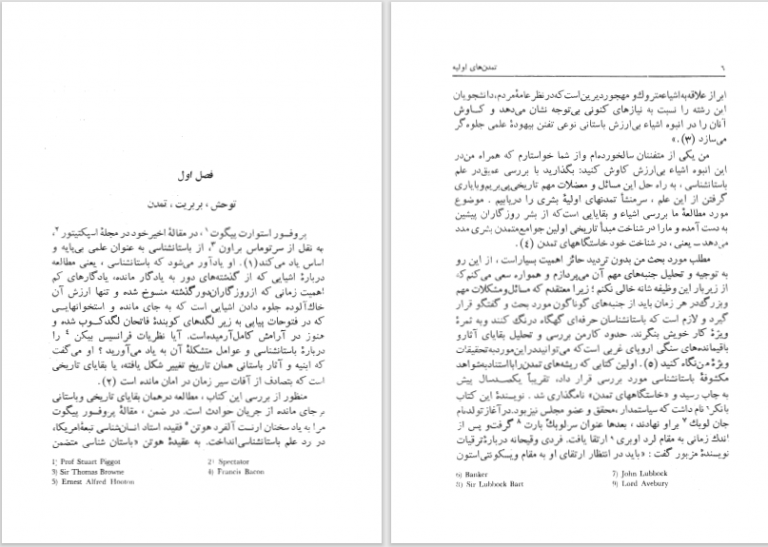 فصل اول
توحش، بربریت، تمدن
پروفسور استوارت پیگوت ۱، در مقالهٔ اخیر خود در مجلهٔ اسپکتیتور ۲،
به نقل از سرتوماس براون ۳، از باستانشناسی به عنوان علمی بی‌پایه و
اساس یاد می‌کند(۱). او یادآور می‌شود که باستانشناسی، یعنی مطالعه
دربارهٔ اشیایی که از گذشته‌های دور به یادگار مانده، یادگارهای کم
اهمیت زمانی که ازروزگاران‌دورگذشته منسوخ شده و تنها ارزش آن
خاك‌آلوده جلوه دادن اشیایی است که به جای مانده و استخوانهایی
که در فتوحات پیاپی به زیر لگدهای کوبندهٔ فاتحان لگدکوب شده و
هنوز در آرامش کامل‌آرمیده‌است. آیا نظریات فرانسیس بیکن ۴ را
دربارهٔ باستانشناسی و عوامل متشکلهٔ آن به یاد می‌آورید؟ او می‌گفت
که ابنیه و آثار باستانی همان تاریخ تغییر شکل یافته، یا بقایای تاریخی
است که بتصادف از آفات سیر زمان در امان مانده است (۲).
منظور از بررسی این کتاب، مطالعه درهمان بقایای تاریخی وباستانی
برجای مانده از جریان حوادث است. در ضمن، مقالهٔ پروفسور پیگوت
مرا به یاد سخنان ارنست آلفرد هوتن ۵ فقیده، استاد انسان‌شناسی تبعهٔ‌امریکا،
در رد علم باستانشناسی‌انداخت. به عقیدهٔ هوتن «باستان شناسی متضمن
1) Prof Stuart Piggot 2) Spectator
3) Sir Thomas Browne 4) Francis Bacon
5) Ernest Alfred Hooton
۶ تمدن‌های اولیه
ابراز علاقه‌به‌اشیاءمتروك‌و مهجوردیرین‌است‌که‌درنظرعامهٔ‌مردم،دانشجویان
این رشته را نسبت به نیازهای کنونی بی‌توجه نشان می‌دهد و کاوش
آنان را در انبوه اشیاء بی‌ارزش باستانی نوعی تفنن بیهودهٔ علمی جلوه‌گر
می‌سازد (۳).»
من یکی از متفننان سالخورده‌ام واز شما خواستارم که همراه من‌در
این انبوه اشیاء بی‌ارزش کاوش کنید: بگذارید با بررسی عمیق‌در علم
باستانشناسی، به راه حل این مسائل و معضلات مهم تاریخی‌پی‌بریم‌وبایاری
گرفتن از این علم، سرمنشأ تمدنهای اولیهٔ بشری را دریابیم. موضوع
مورد مطالعهٔ ما بررسی اشیاء و بقایایی است‌که از بشر روزگاران پیشین
به دست آمده و مارا در شناخت مبدأ تاریخی اولین جوامع‌متمدن بشری مدد
می‌دهد ـ یعنی، در شناخت خود خاستگاههای تمدن (۴).
مطلب مورد بحث من بدون تردید حائز اهمیت بسیاراست، از این رو
به توجیه و تحلیل جنبه‌های مهم آن می‌پردازم و همواره سعی می‌کنم‌که
از زیربار این وظیفه شانه خالی نکنم؛ زیرا معتقدم که مسائل‌ومشکلات مهم
وبزرگ‌در هر زمان باید از جنبه‌های گوناگون مورد بحث و گفتگو قرار
گیرد و لازم است که باستانشناسان حرفه‌ای گهگاه درنگ کنند وبه ثمرهٔ
ویژهٔ کار خویش بنگرند. حدود کارمن بررسی و تحلیل بقایای آثارو
باقیمانده‌های سنگی اروپای غربی است‌که می‌توانیددراین‌موردبه‌تحقیقات
ویژهٔ‌من‌نگاه کنید (۵). اولین کتابی که ریشه‌های تمدن‌راباستنادبه‌شواهد
مکشوفهٔ باستانشناسی مورد بررسی قرار داد، تقریباً یکصدسال پیش
به چاپ رسید و «خاستگاههای تمدن» نامگذاری شد. نویسندهٔ این کتاب
بانکر ۶ نام داشت که سیاستمدار، محقق و عضو مجلس نیزبود.درآغازتولدنام
جان لوبك ۷ براو نهادند، بعدها عنوان سرلوبك بارت ۸ گرفت‌و پس از
اندك زمانی به مقام لرد اوبری ۹ ارتقا یافت. فردی وقیحانه دربارهٔ‌ترقیات
نویسندهٔ مزبور گفت: «باید در انتظار ارتقای او به مقام ویسکونتی‌استون
6) Banker 7) John Lubbock
8) Sir Lubbock Bart 9) Lord Avebury